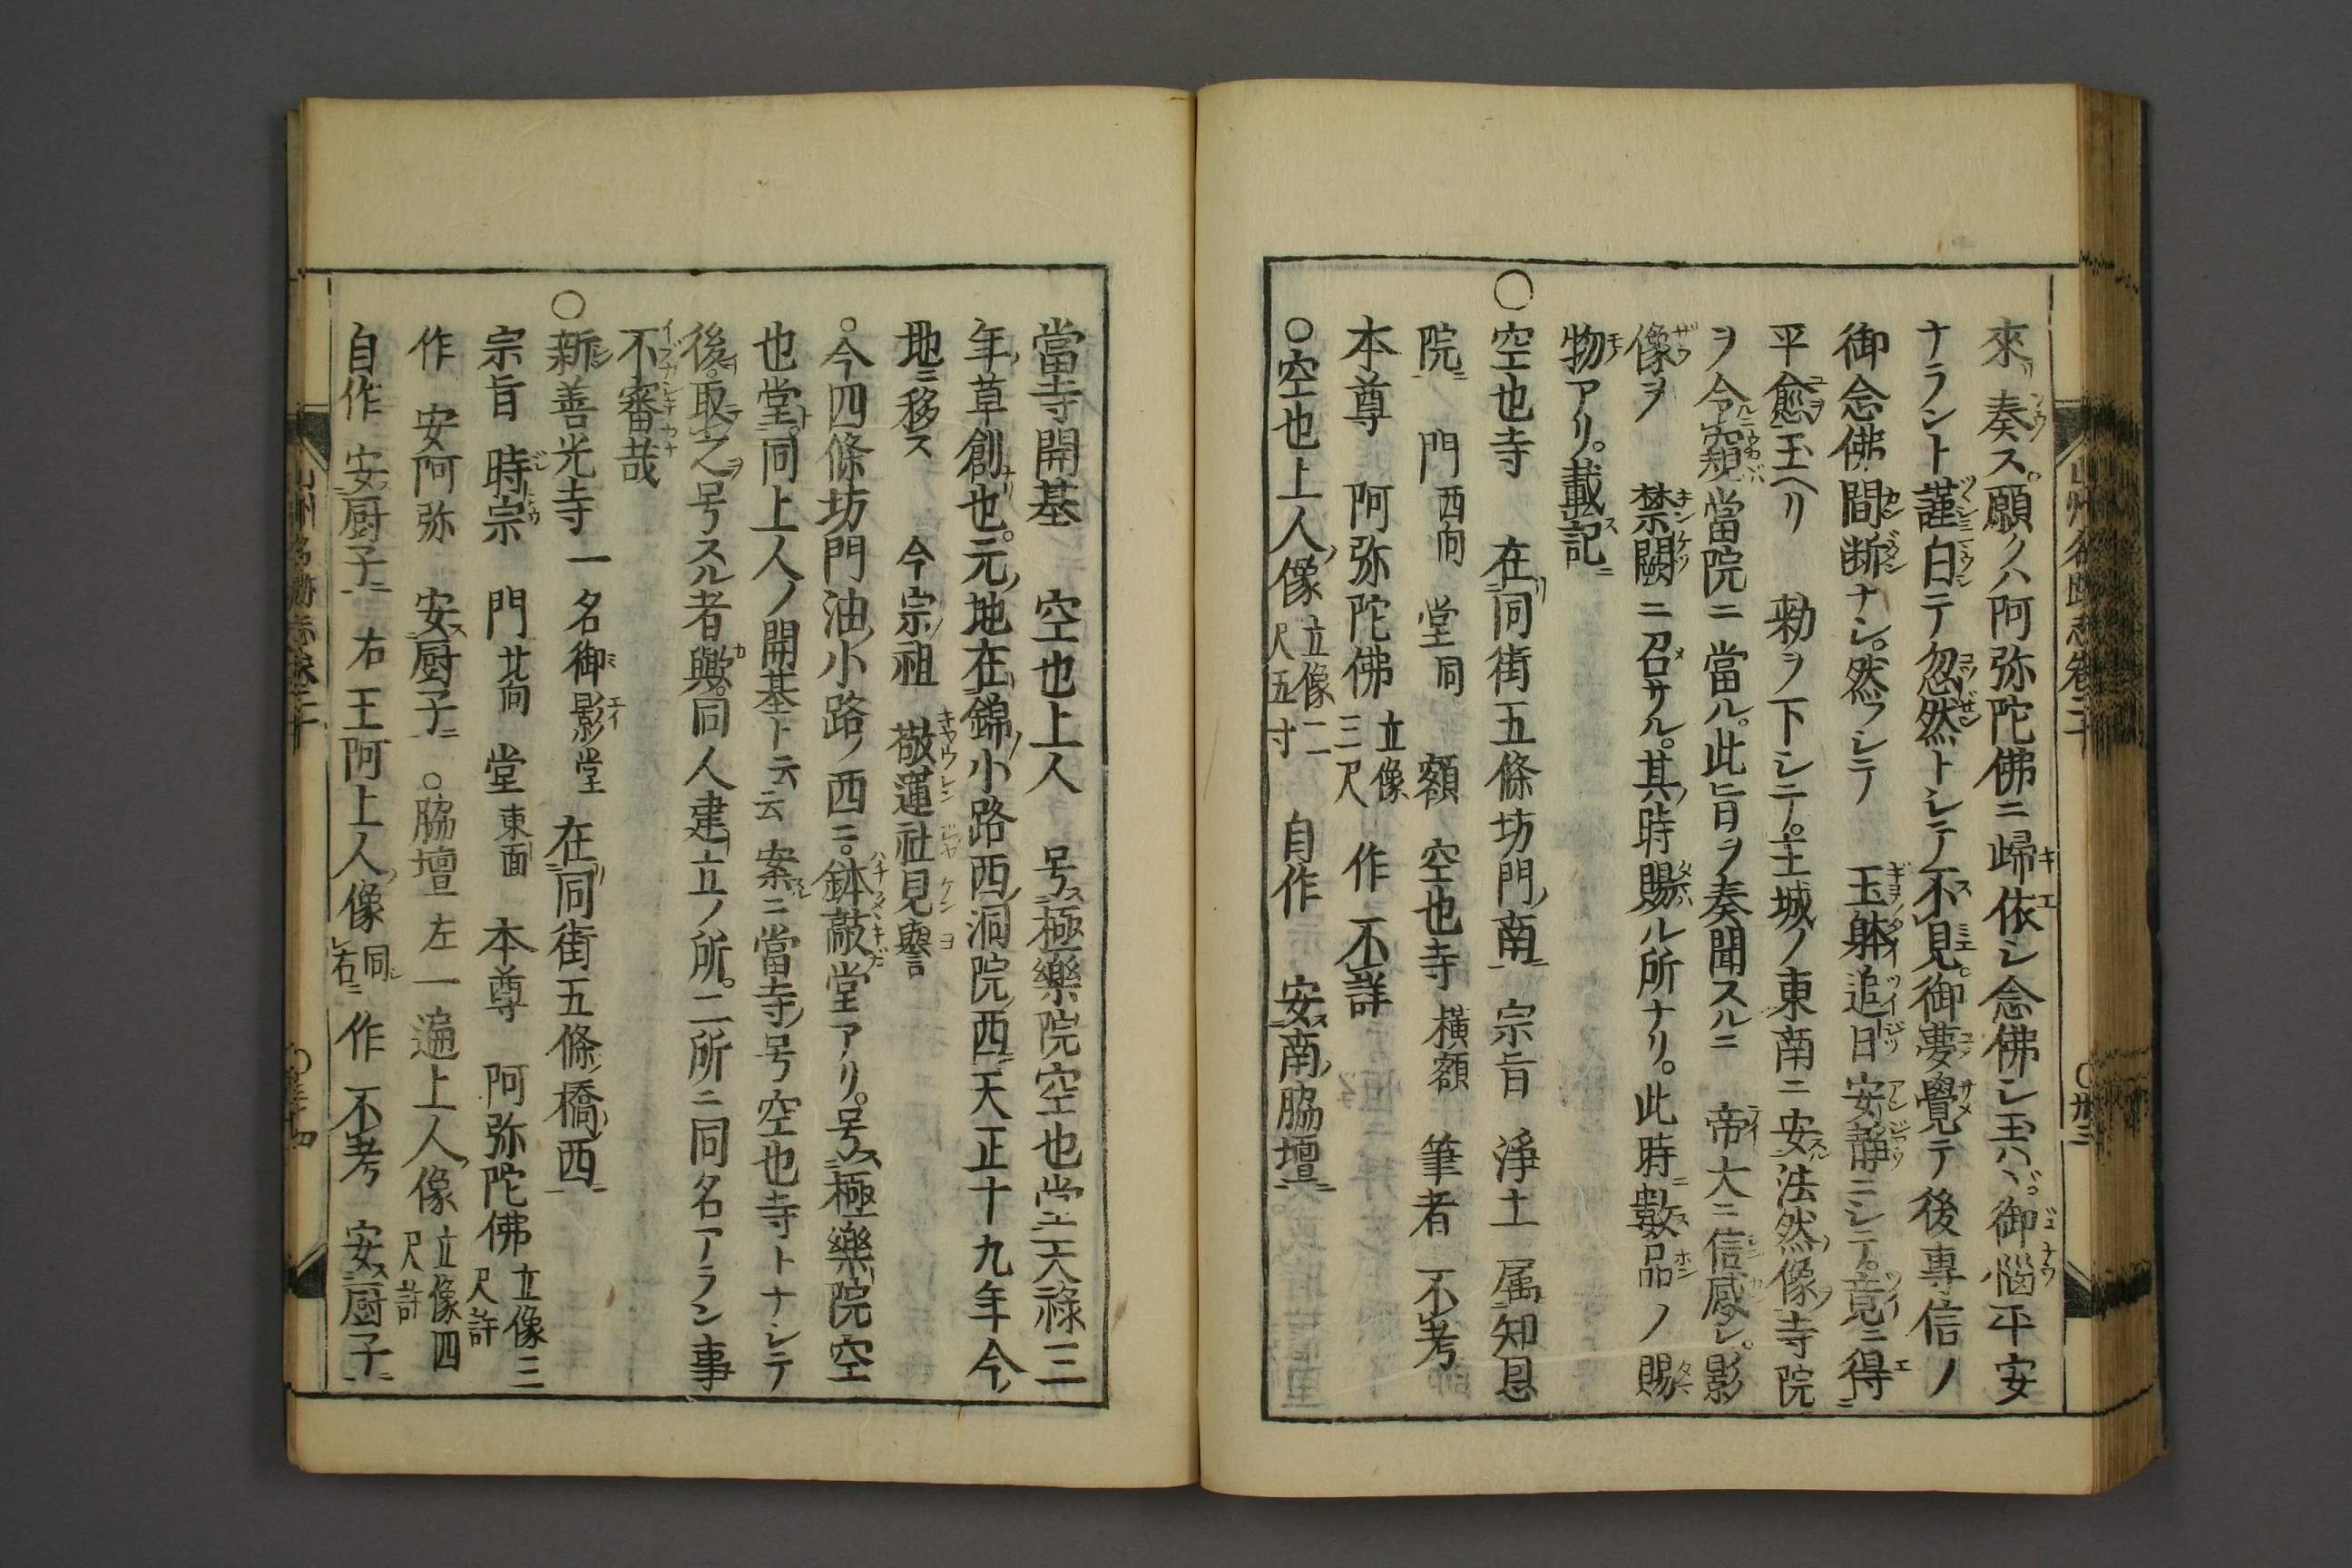 來奏ス。願クハ阿弥陀佛ニ歸依シ念佛シ玉ハヾ。御惱平安
ナラント謹白テ忽然トシテ不見。御夢覺テ後專信ノ
御念佛間断ナシ。然フシテ 玉躰追日安静ニシテ。竟ニ得
平愈玉ヘリ 勅ヲ下シテ。王城ノ東南ニ安法然像寺院
ヲ令窺當院ニ當ル。此旨ヲ奏聞スルニ 帝大ニ信感シ。影
像ヲ 禁闕ニ召サル。其時賜ル所ナリ。此時數品ノ賜
物アリ。載記ニ
○空也寺 在同街五條坊門南 宗旨 淨土 属知恩
院 門西向 堂同 額 空也寺横額 筆者 不考
本尊 阿弥陀佛立像三尺 作 不詳
○空也上人像立像二尺五寸 自作 安南脇壇
當寺開基 空也上人 号極樂院空也堂天祿三
年草創也。元地在錦小路西洞院西天正十九年今
地ニ移ス 今宗祖 敬蓮社見譽
○今四條坊門油小路ノ西ニ。鉢敲堂アリ。号極樂院空
也堂。同上人ノ開基ト云云 案ニ當寺号空也寺トナシテ
後。取之号スル者歟。同人建立ノ所。二所ニ同名アラン事
不審哉
○新善光寺 一名御影堂 在同街五條橋西
宗旨 時宗 門北向 堂東面 本尊 阿弥陀佛立像三尺許
作 安阿弥 安厨子 ○脇壇左一遍上人像立像四尺許
自作 安厨子 右 王阿上人像同右 作 不考 安厨子